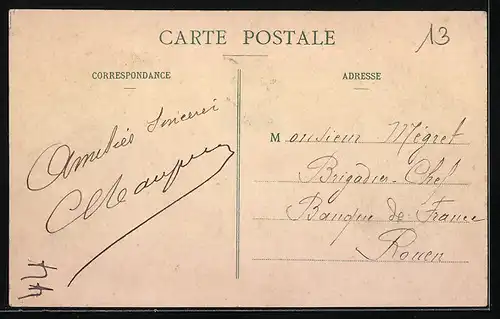 CARTE POSTALE
13
CORRESPONDANCE
ADRESSE
Amitiés sincères
Monsieur Mégret
Brigadier-Chef
Banque de France
Rouen
44